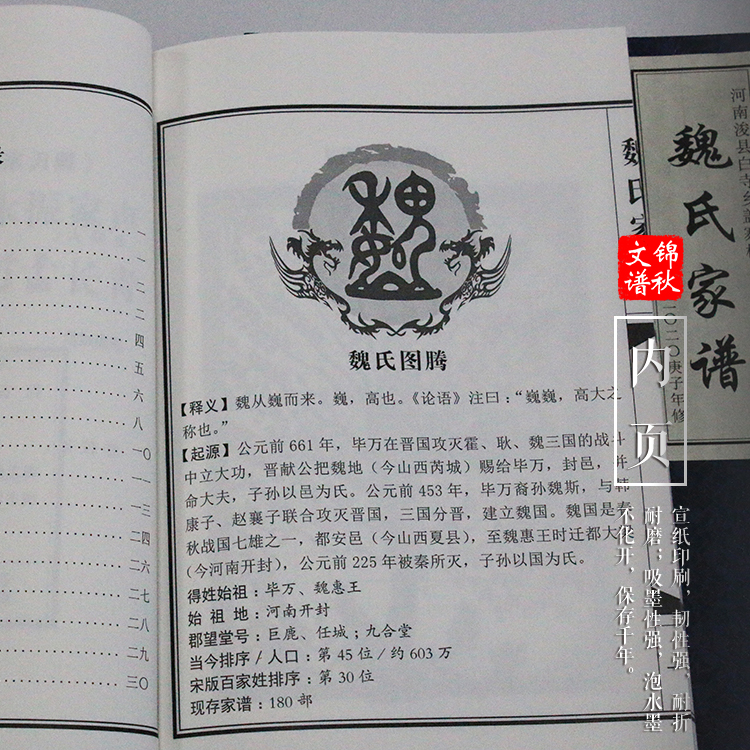 一
一
二
二
四
五
六
八
一〇
一一
一三
二四
二六
二七
二八
二九
三〇
魏氏图腾
【释义】魏从巍而来。巍，高也。《论语》注曰：“巍巍，高大之
称也。”
【起源】公元前 661 年，毕万在晋国攻灭霍、耿、魏三国的战斗
中立大功，晋献公把魏地（今山西芮城）赐给毕万，封邑，并
命大夫，子孙以邑为氏。公元前 453 年，毕万裔孙魏斯，与韩
康子、赵襄子联合攻灭晋国，三国分晋，建立魏国。魏国是春
秋战国七雄之一，都安邑（今山西夏县），至魏惠王时迁都大
（今河南开封），公元前 225 年被秦所灭，子孙以国为氏。
得姓始祖：毕万、魏惠王
始 祖 地：河南开封
郡望堂号：巨鹿、任城；九合堂
当今排序 / 人口：第 45 位 / 约 603 万
宋版百家姓排序：第 30 位
现存家谱：180 部
魏氏家
河南浚县白寺
魏氏家谱
二〇二〇庚子年修
锦秋
文谱
内页
宣纸印刷，韧性强，耐折
耐磨；吸墨性强，泡水墨
不化开，保存千年。